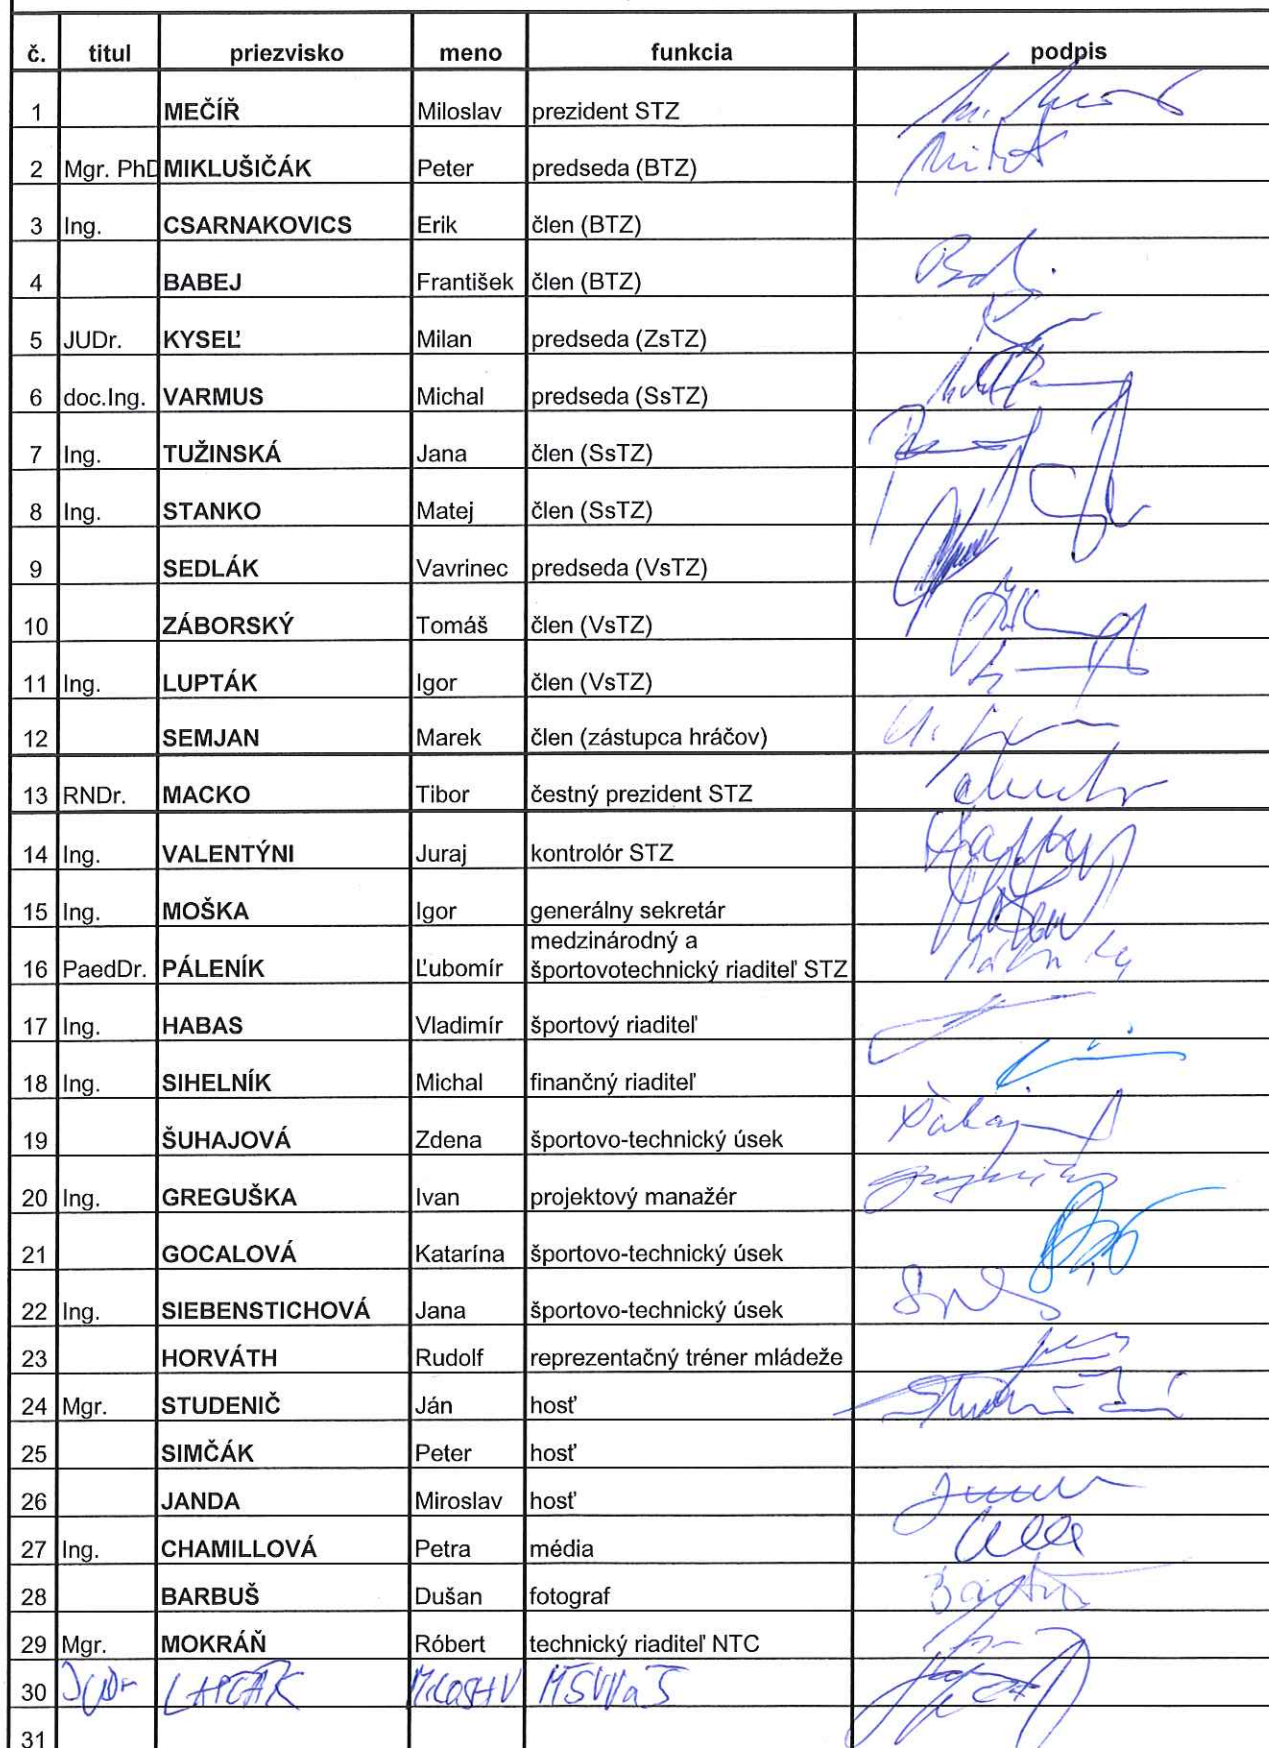 č. titul priezvisko meno funkcia podpis
1 MEČÍŘ Miloslav prezident STZ
2 Mgr. PhD MIKLUŠIČÁK Peter predseda (BTZ)
3 Ing. CSARNAKOVICS Erik člen (BTZ)
4 BABEJ František člen (BTZ)
5 JUDr. KYSEĽ Milan predseda (ZsTZ)
6 doc.Ing. VARMUS Michal predseda (SsTZ)
7 Ing. TUŽINSKÁ Jana člen (SsTZ)
8 Ing. STANKO Matej člen (SsTZ)
9 SEDLÁK Vavrinec predseda (VsTZ)
10 ZÁBORSKÝ Tomáš člen (VsTZ)
11 Ing. LUPTÁK Igor člen (VsTZ)
12 SEMJAN Marek člen (zástupca hráčov)
13 RNDr. MACKO Tibor čestný prezident STZ
14 Ing. VALENTÝNI Juraj kontrolór STZ
15 Ing. MOŠKA Igor generálny sekretár
medzinárodný a
16 PaedDr. PÁLENÍK Ľubomír športovotechnický riaditeľ STZ
17 Ing. HABAS Vladimír športový riaditeľ
18 Ing. SIHELNÍK Michal finančný riaditeľ
19 ŠUHAJOVÁ Zdena športovo-technický úsek
20 Ing. GREGUŠKA Ivan projektový manažér
21 GOCALOVÁ Katarína športovo-technický úsek
22 Ing. SIEBENSTICHOVÁ Jana športovo-technický úsek
23 HORVÁTH Rudolf reprezentačný tréner mládeže
24 Mgr. STUDENIČ Ján hosť
25 SIMČÁK Peter hosť
26 JANDA Miroslav hosť
27 Ing. CHAMILLOVÁ Petra média
28 BARBUŠ Dušan fotograf
29 Mgr. MOKRÁŇ Róbert technický riaditeľ NTC
30 JUDr MŠVVaŠ
31